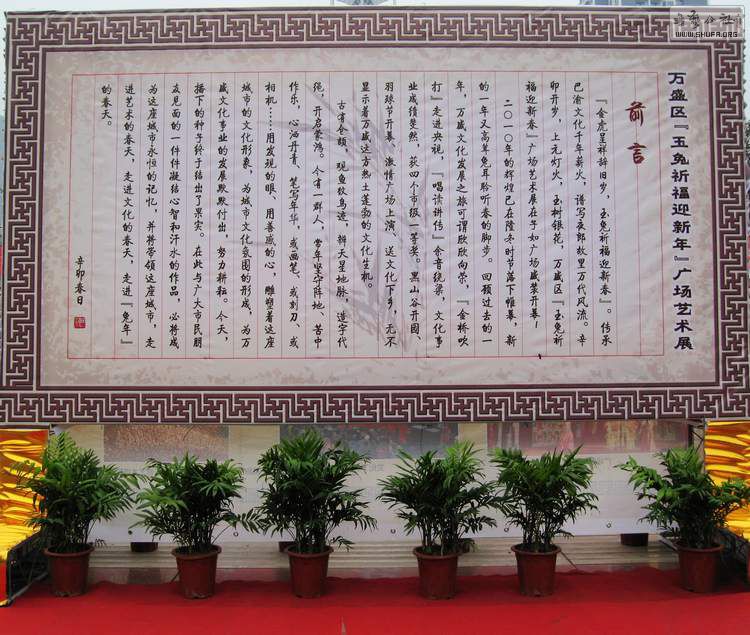 万盛区『玉兔祈福迎新年』广场艺术展
前言
『金虎呈祥辞旧岁，玉兔祈福迎新春』。传承
巴渝文化千年薪火，谱写夜郎故里万代风流。辛
卯开岁，上元灯火，玉树银花，万盛区『玉兔祈
福迎新春』广场艺术展在子如广场盛装开幕！
二〇一〇年的辉煌已在隆冬时节落下帷幕，新
的一年又高举兔耳聆听春的脚步。回顾过去的一
年，万盛文化发展之旅可谓欣欣向荣，『金桥吹
打』走进央视，『唱读讲传』余音绕梁，文化事
业成绩斐然，获四个市级一等奖。黑山谷开园、
羽球节开幕、激情广场上演、送文化下乡，无不
显示着万盛这方热土蓬勃的文化生机。
古有仓颉，观鱼纹鸟迹，辩天星地脉，造字代
绳，开启蒙鸿。今有一群人，常年坚守阵地、苦中
作乐，心洒丹青，笔写年华，或画笔、或刻刀、或
相机……用发现的眼、用善感的心，雕塑着这座
城市的文化形象，为城市文化氛围的形成，为万
盛文化事业的发展默默付出，努力耕耘。今天，
播下的种子终于结出了果实。在此与广大市民朋
友见面的一件件凝结心智和汗水的作品，必将成
为这座城市永恒的记忆，并将带领这座城市，走
进艺术的春天，走进文化的春天，走进『兔年』
的春天。
辛卯春日
WWW.SHUFA.ORG